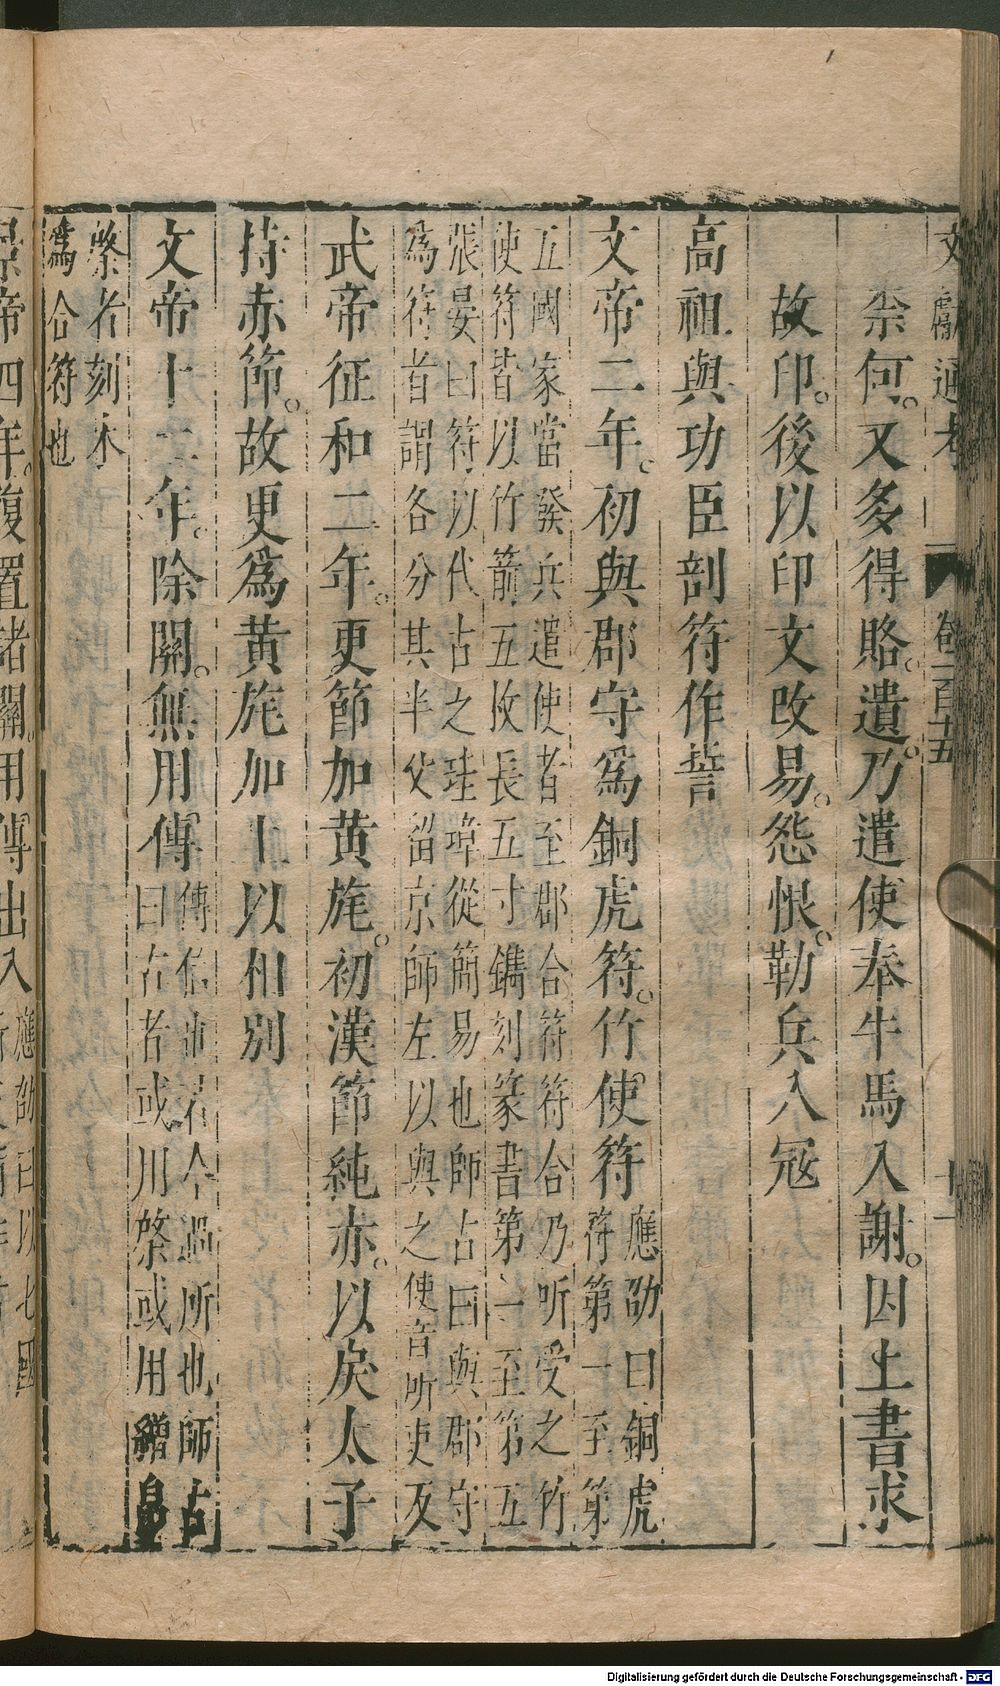 文獻通考 卷一百十五 十一
柰何。又多得賂遺。乃遣使奉牛馬入謝。因上書求
故印。後以印文改易。怨恨。勒兵入寇
高祖與功臣剖符作誓
文帝二年。初與郡守爲銅虎符。竹使符
應劭曰銅虎
符第一至第
五國家當發兵遣使者至郡合符符合乃听受之竹
使符皆以竹箭五枚長五寸鐫刻篆書第一至第五
張晏曰符以代古之珪璋從簡易也師古曰與郡守
爲符者謂各分其半父留京師左以與之使音所吏反
武帝征和二年。更節加黄旄。初漢節純赤。以戾太子
持赤節。故更爲黄旄加上以相别
文帝十二年。除關。無用傳
傳信也若今過所也師古
曰古者或用棨或用繒帛
棨者刻木
爲合符也
景帝四年。復置諸關。用傳出入
應劭曰以七國
Digitalisierung gefördert durch die Deutsche Forschungsgemeinschaft - DFG